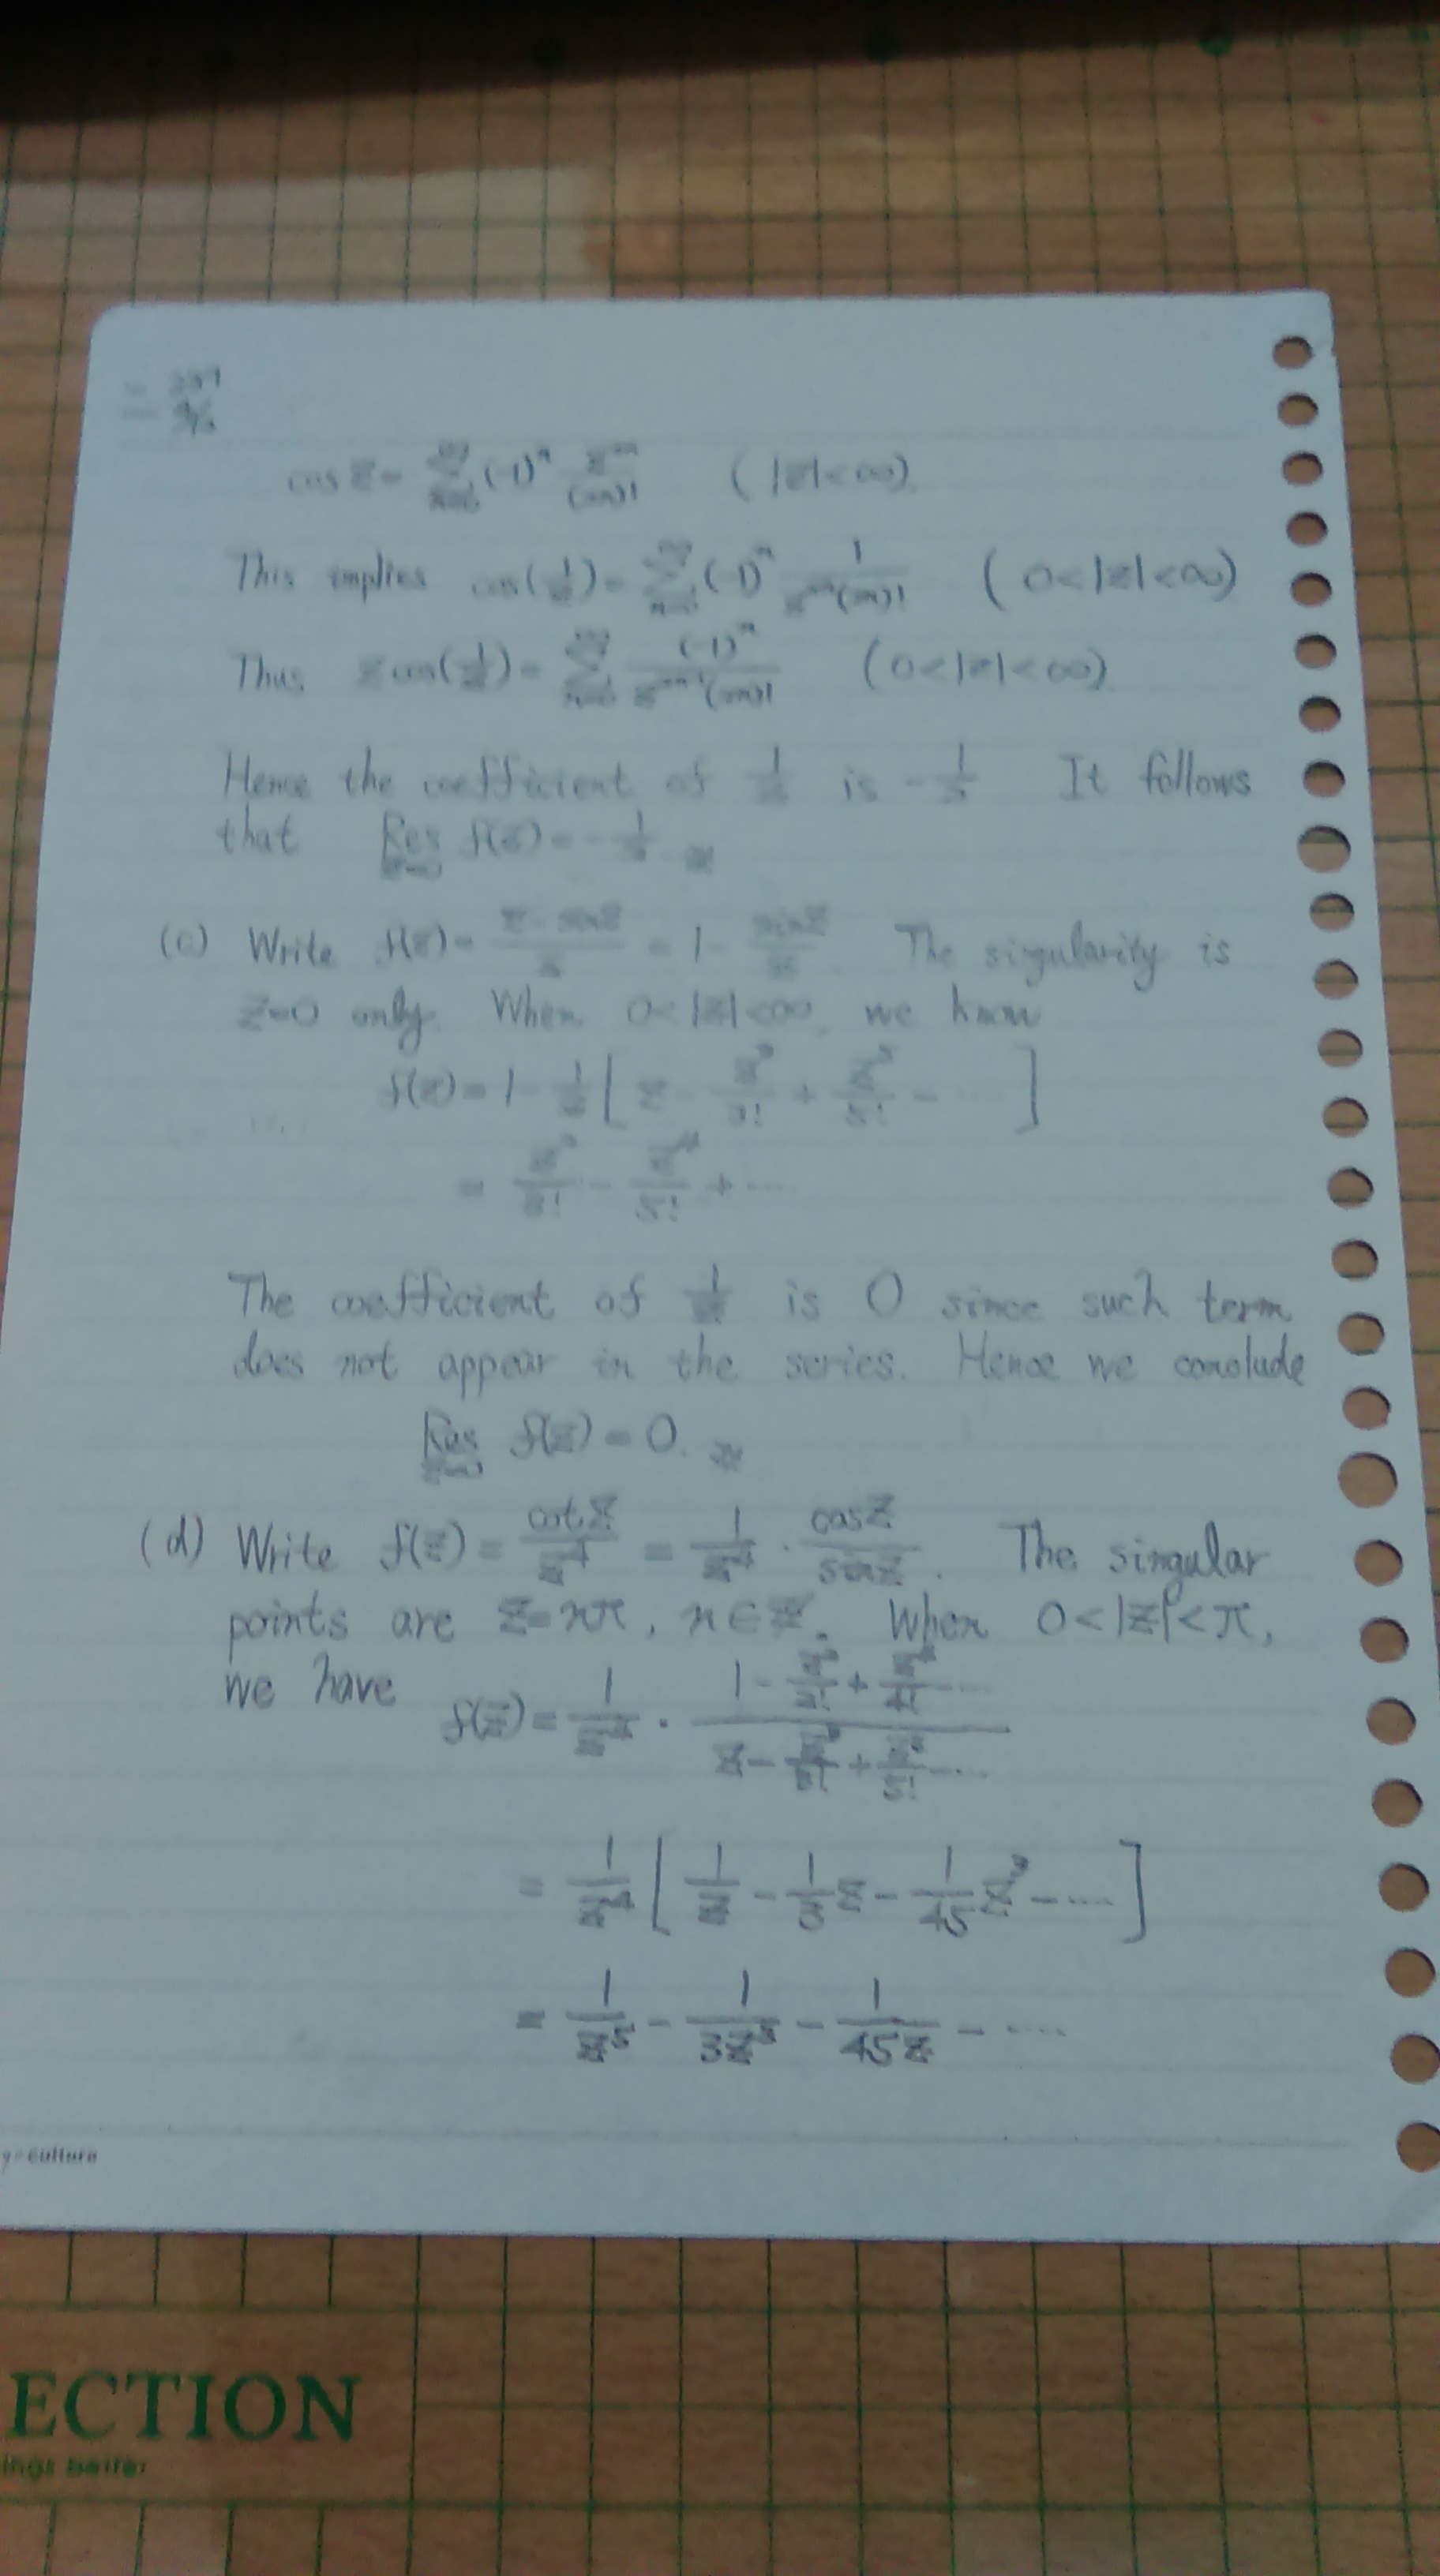 cos z = Σ (-1)^n z^2n/(2n)! (|z|<∞).
This implies cos(1/z) = Σ (-1)^n 1/(z^2n (2n)!) (0<|z|<∞)
Thus z cos(1/z) = Σ (-1)^n/(z^(2n-1) (2n)!) (0<|z|<∞).
Hence the coefficient of 1/z is -1/2 It follows
that Res f(z) = -1/2.
(c) Write f(z) = (z - sin z)/z = 1 - sin z/z The singularity is
z=0 only. When 0<|z|<∞, we know
f(z) = 1 - 1/z [ z - z^3/3! + z^5/5! - ... ]
= z^2/3! - z^4/5! + ...
The coefficient of 1/z is 0 since such term
does not appear in the series. Hence we conclude
Res f(z) = 0.
z=0
(d) Write f(z) = cot z/z^4 = 1/z^4 · cos z/sin z. The singular
points are z=nπ, n∈Z. When 0<|z|<π,
we have f(z) = 1/z^4 · (1 - z^2/2! + z^4/4! ...)/(z - z^3/3! + z^5/5! - ...)
= 1/z^4 [ 1/z - 1/3 z - 1/45 z^3 - .... ]
= 1/z^5 - 1/3z^3 - 1/45z - ....
y=culture
ECTION
ings better